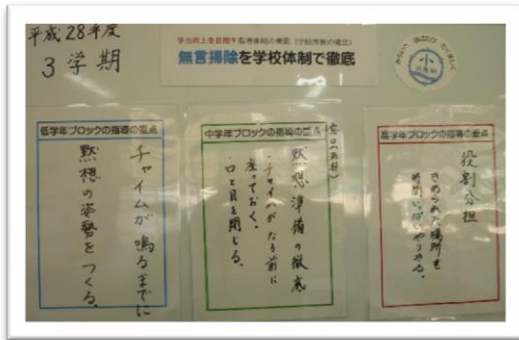 平成28年度
3学期
無言掃除を学校体制で徹底
小
低学年ブロックの指導の重点
チャイムが鳴るまでに
黙想の姿勢をつくる。
中学年ブロックの指導の重点
黙想準備の徹底
・チャイムがなる前に
座っておく。
・口と目を閉じる。
高学年ブロックの指導の重点
役割分担
きめられた場所を
時間いっぱいやりきる。